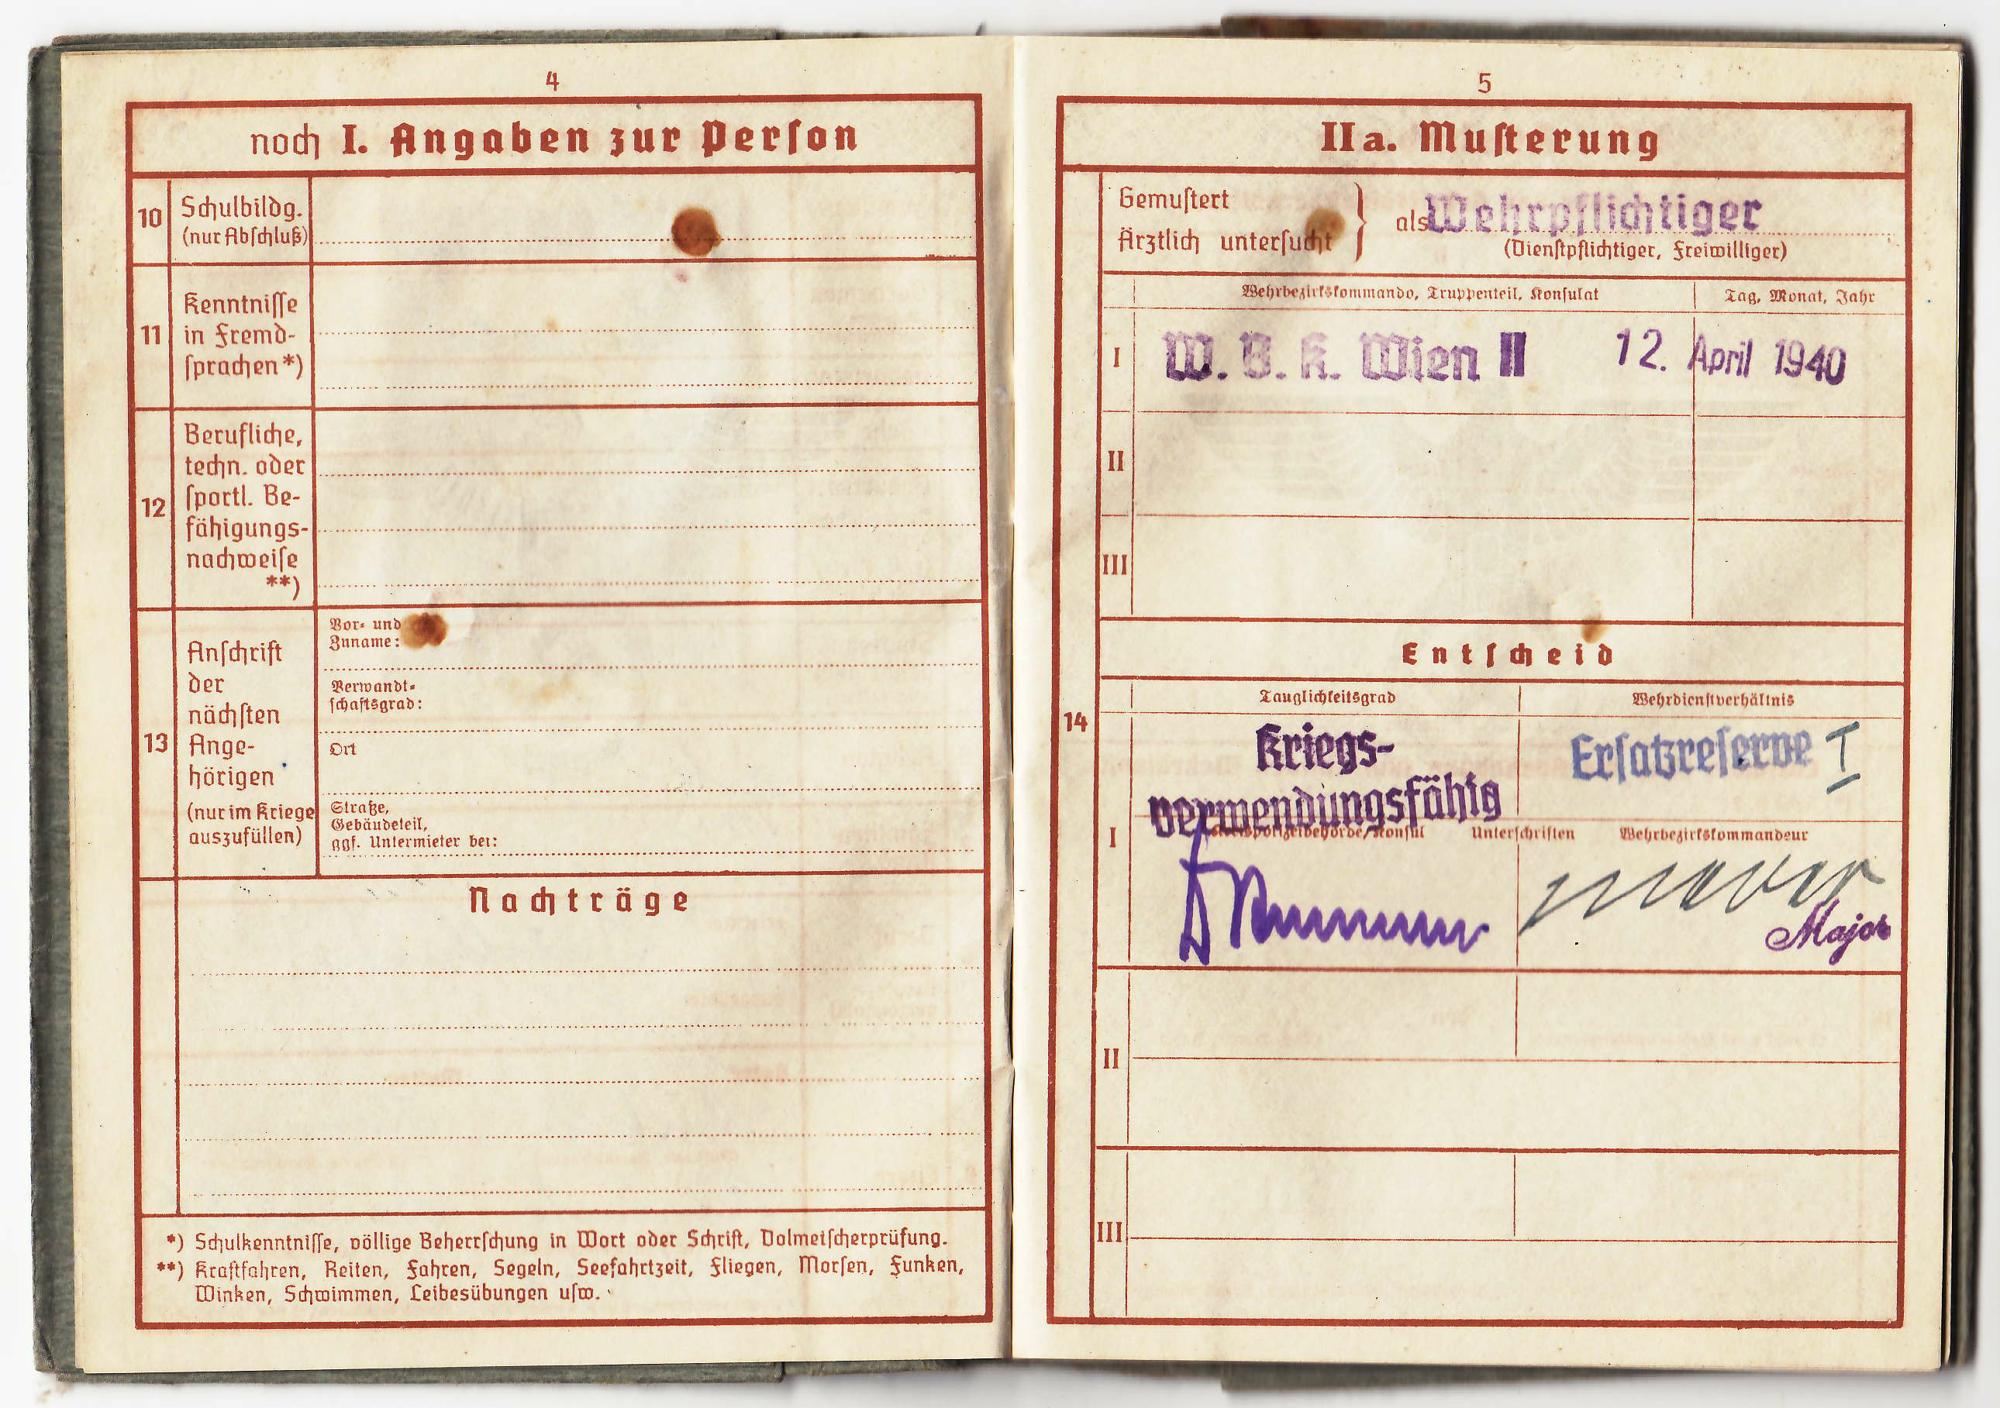 4
noch I. Angaben zur Person
10
Schulbildg.
(nur Abschluß)
11
Kenntnisse
in Fremd-
sprachen *)
12
Berufliche,
techn. oder
sportl. Be-
fähigungs-
nachweise
**)
13
Anschrift
der
nächsten
Ange-
hörigen
(nur im Kriege
auszufüllen)
Vor- und
Zuname:
Verwandt-
schaftsgrad:
Ort
Straße,
Gebäudeteil,
ggf. Untermieter bei:
Nachträge
*) Schulkenntnisse, völlige Beherrschung in Wort oder Schrift, Dolmetscherprüfung.
**) Kraftfahren, Reiten, Fahren, Segeln, Seefahrtzeit, Fliegen, Morsen, Funken,
Winken, Schwimmen, Leibesübungen usw.
5
IIa. Musterung
Gemustert
Ärztlich untersucht } als Wehrpflichtiger
(Dienstpflichtiger, Freiwilliger)
Wehrbezirkskommando, Truppenteil, Konsulat Tag, Monat, Jahr
I W. B. K. Wien II 12. April 1940
II
III
Entscheid
14
Tauglichkeitsgrad Wehrdienstverhältnis
Kriegs-
verwendungsfähig
Ersatzreserve I
I
Kreispolizeibehörde/Konsul Unterschriften Wehrbezirkskommandeur
Major
II
III